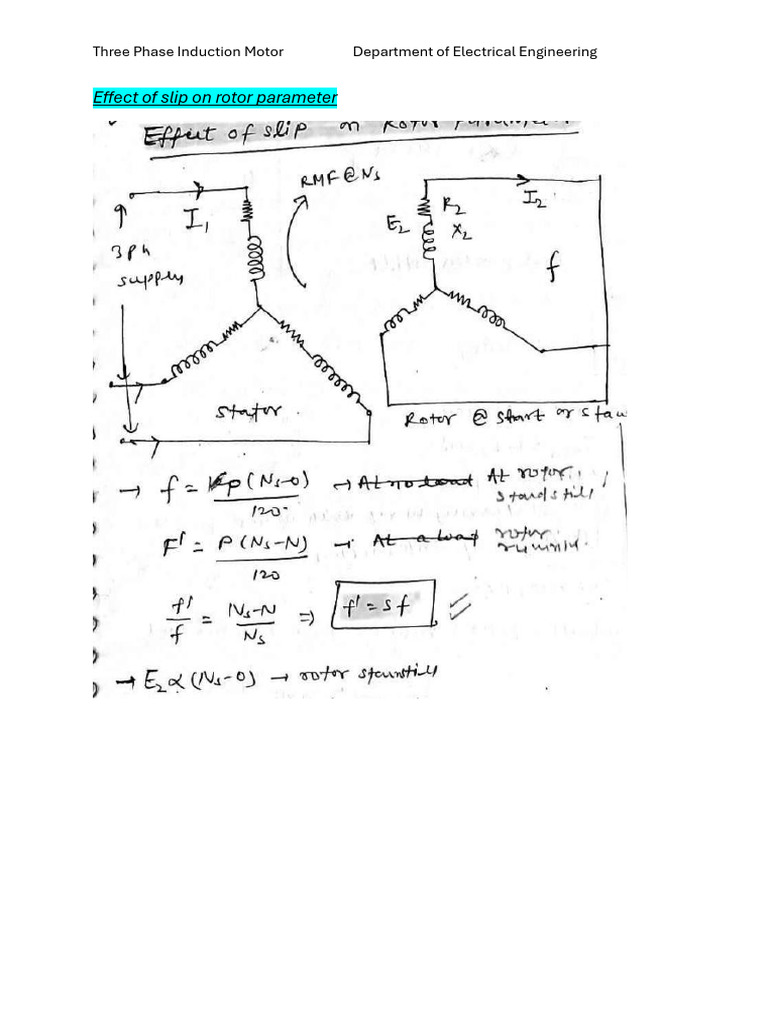 Three Phase Induction Motor Department of Electrical Engineering
Effect of slip on rotor parameter
Effect of slip on Rotor
RMF @ Ns
I₁
3ph
supply
Stator
I₂
R₂
E₂ X₂
f
Rotor @ start or
→ f = P(Ns-0)/120 → At no load At rotor standstill
F' = P(Ns-N)/120 → At a load rotor
f'/f = Ns-N/Ns ⇒ f' = sf
→ E₂ ∝ (Ns-0) → rotor